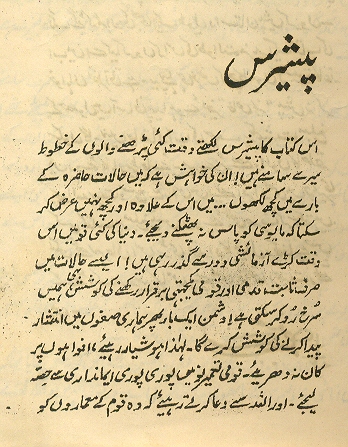 پیشرس
اس کتاب کا پیشرس لکھتے وقت کئی پڑھنے والوں کے خطوط
میرے سامنے ہیں! ان کی خواہش ہے کہ میں حالات حاضرہ کے
بارے میں کچھ لکھوں ... میں اس کے علاوہ اور کچھ نہیں عرض کر
سکتا کہ مایوسی کو پاس نہ پھٹکنے دیجئے۔ دنیا کی کئی قومیں اس
وقت کڑے آزمائشی دور سے گذر رہی ہیں! ایسے حالات میں
صرف ثابت قدمی اور قومی یکجہتی برقرار رکھنے کی کوشش ہی ہمیں
سُرخ رُو کر سکتی ہے! دشمن ایک بار پھر ہماری صفوں میں انتشار
پیدا کرنے کی کوشش کرے گا۔ لہٰذا ہوشیار رہیے، افواہوں پر
کان نہ دھریئے۔ قومی تعمیرِ نو میں پوری پوری ایمانداری سے حِصّہ
لیجئے۔ اور اللہ سے دعا کرتے رہیئے کہ وہ قوم کے معماروں کو